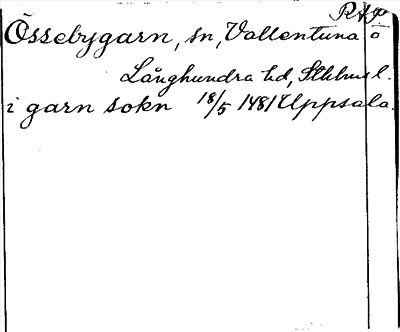 RAP
Össebygarn, sn, Vallentuna ö
Långhundra hd, Sthlms l.
i garn sokn 18/5 1481 Uppsala.